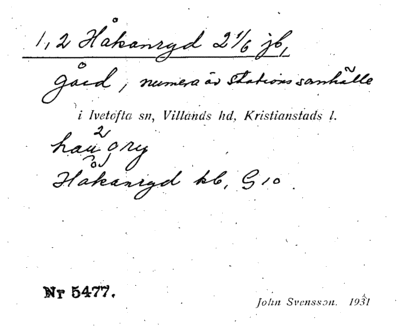 1, 2 Håkanryd 2 1/6 jb,
gård, numera är stationssamhälle
i Ivetofta sn, Villands hd, Kristianstads l.
Håkanryd kb, G 10.
Nr 5477.
John Svensson. 1931